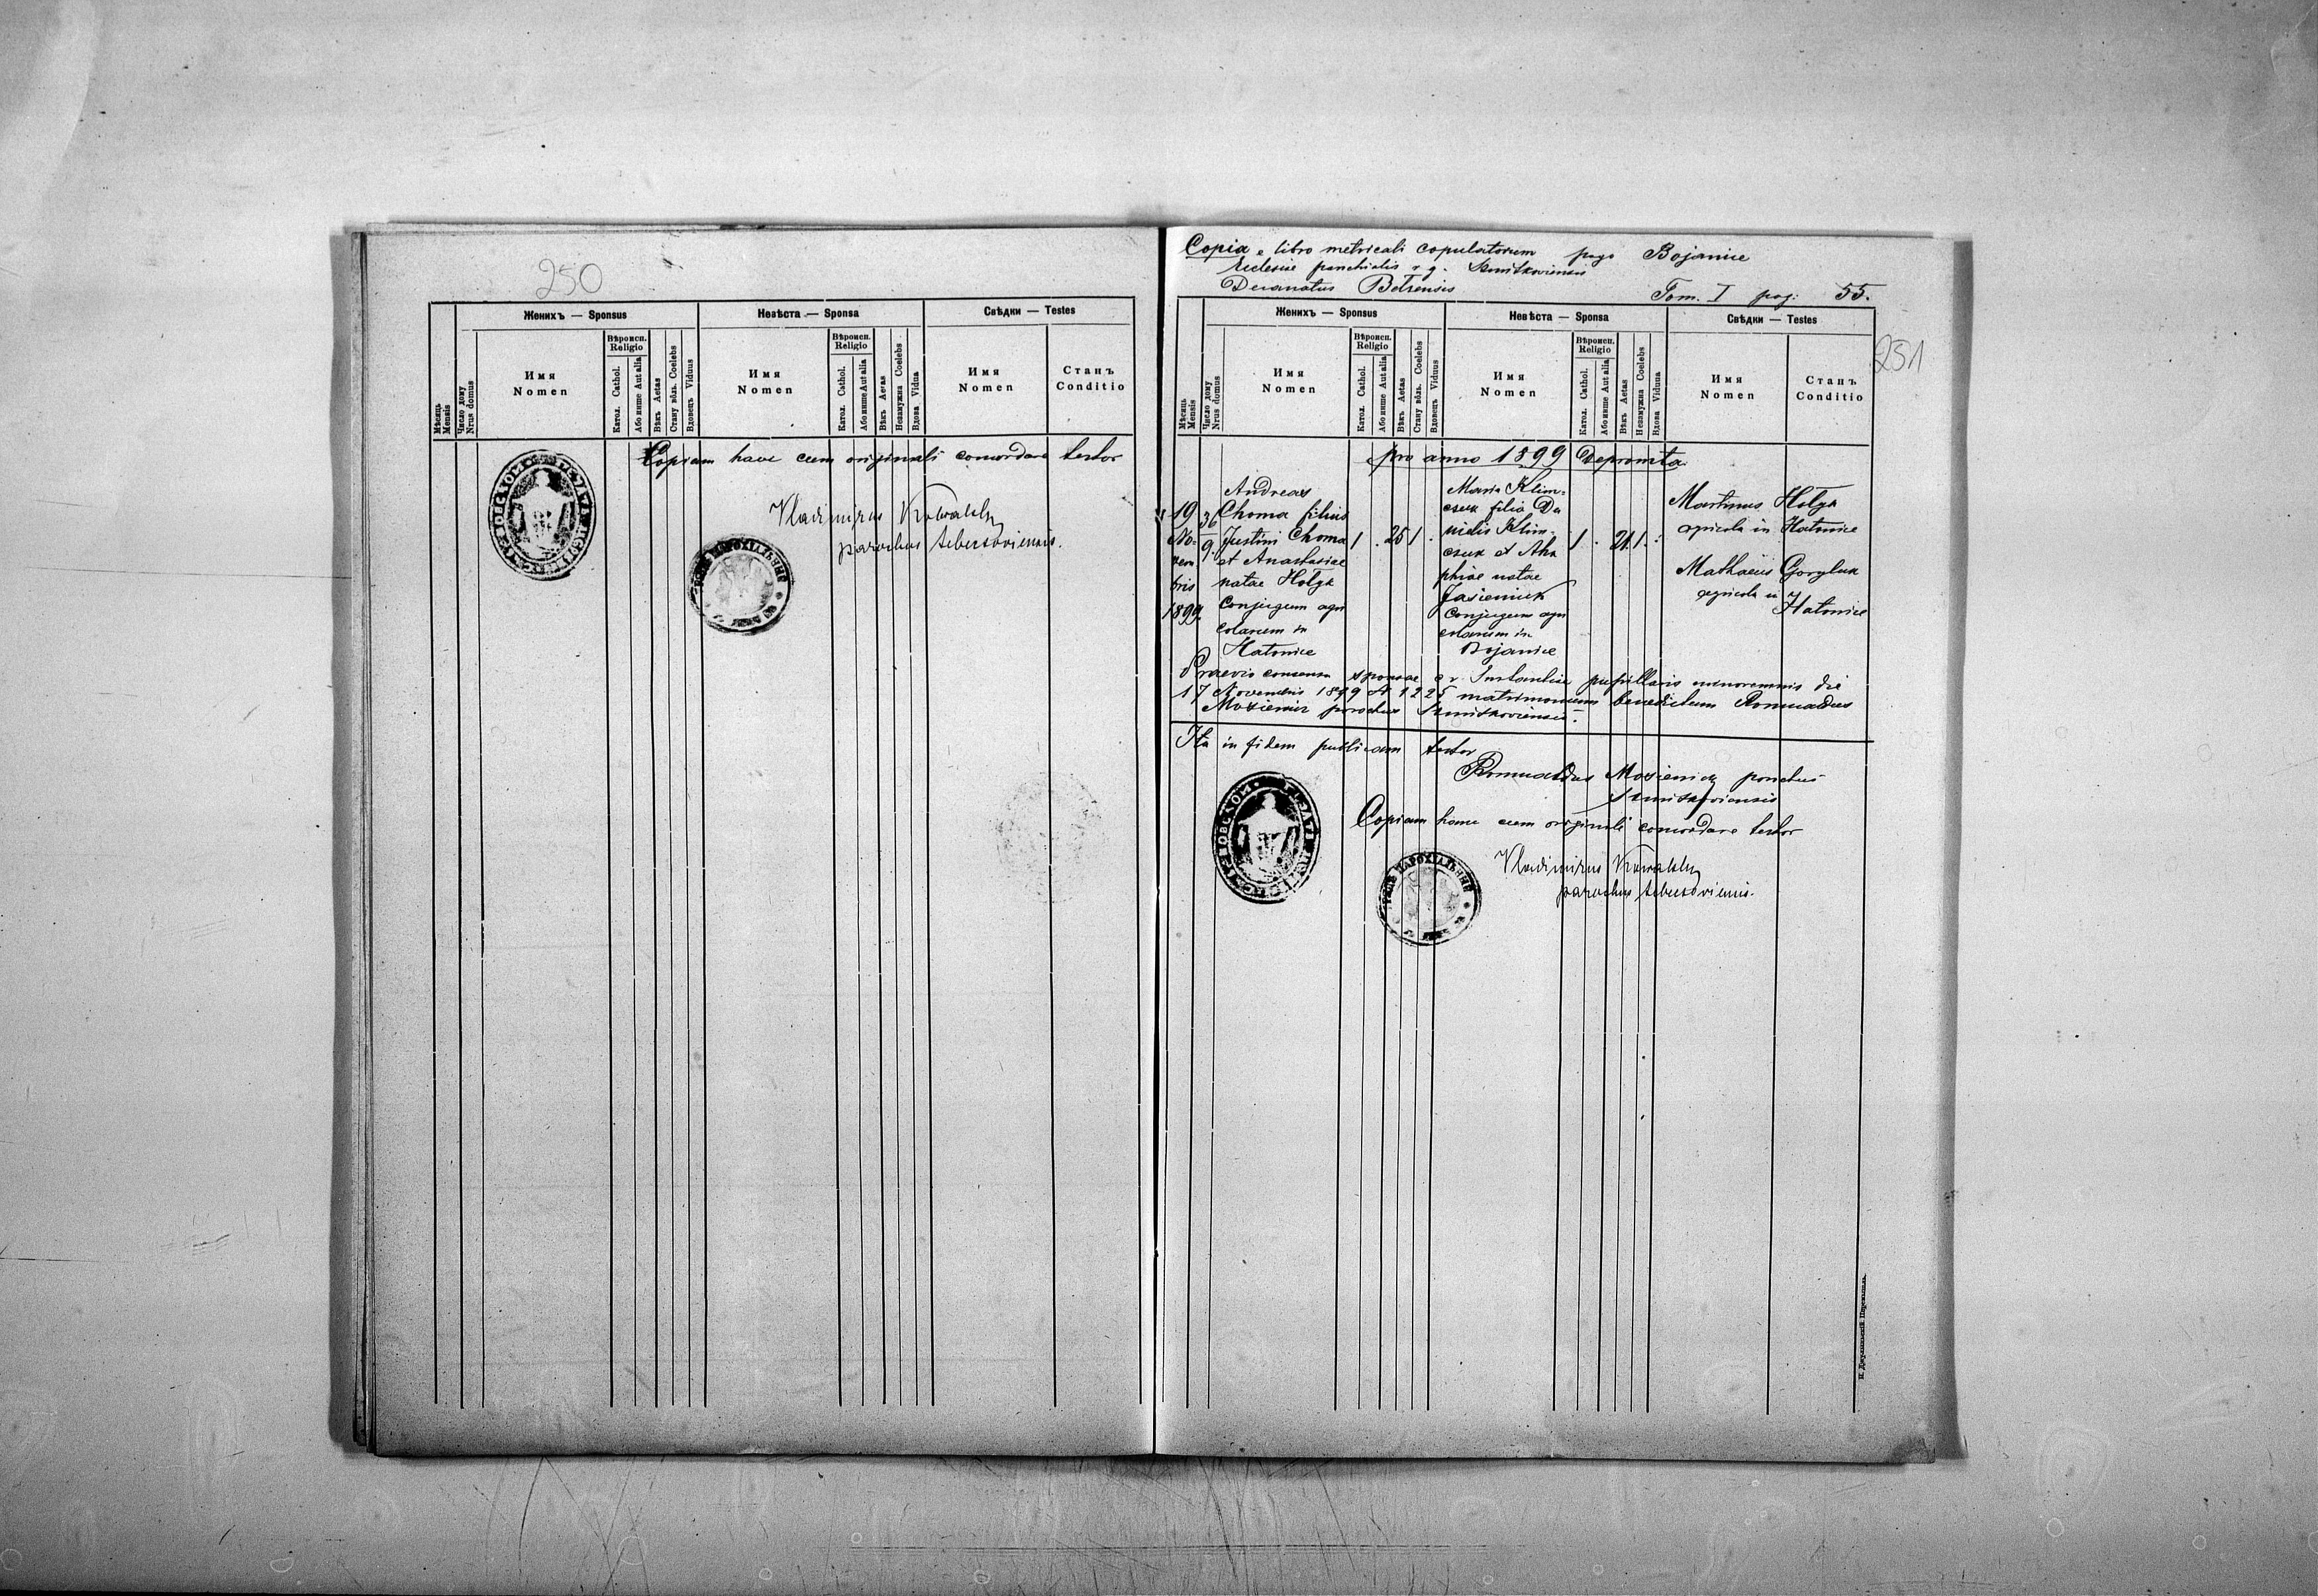 250
Женихъ — Sponsus
Невѣста — Sponsa
Свѣдки — Testes
Мѣсяць Mensis
Число дому Nrus domus
Имя Nomen
Вѣроисп. Religio
Катол. Cathol.
Або инше Aut alia
Вѣкъ Aetas
Стану вôль. Coelebs
Вдовецъ Viduus
Имя Nomen
Вѣроисп. Religio
Катол. Cathol.
Або инше Aut alia
Вѣкъ Aetas
Незамужна Coelebs
Вдова Vidua
Имя Nomen
Станъ Conditio
Copiam hanc cum originali concordare testor
Vladimirus Kowalsky
parochus
Copia e libro metricali copulatorum pago Bojanice
Ecclesiae parochialis r. g.
Decanatus Belzensis
Tom. I pag: 55.
251
Женихъ — Sponsus
Невѣста — Sponsa
Свѣдки — Testes
Мѣсяць Mensis
Число дому Nrus domus
Имя Nomen
Вѣроисп. Religio
Катол. Cathol.
Або инше Aut alia
Вѣкъ Aetas
Стану вôль. Coelebs
Вдовецъ Viduus
Имя Nomen
Вѣроисп. Religio
Катол. Cathol.
Або инше Aut alia
Вѣкъ Aetas
Незамужна Coelebs
Вдова Vidua
Имя Nomen
Станъ Conditio
pro anno 1899 Depromta
19
No=
vem
bris
1899.
36
9.
Andreas
Choma filius
Justini Choma
et Anastasiae
natae Holyk
Conjugum agri
colarum in
Hatowice
1 . 25 1 .
Maria Klim=
czuk filia Da
nielis Klim-
czuk et Aha
phiae natae
Jasieniuk
Conjugum agri
colarum in
Bojanice
1 . 21 1 .
Martinus Holyk
agricola in Hatowice
Mathaeus Goryluk
agricola in
Hatowice
Praevio consensu sponsae c. r. Instantiae pupillaris die
17 Novembris 1899 matrimonium benedictum Romualdus
parochus
Ita in fidem publicam testor
Romualdus parochus
Copiam hanc cum originali concordare testor
Vladimirus Kowalsky
parochus